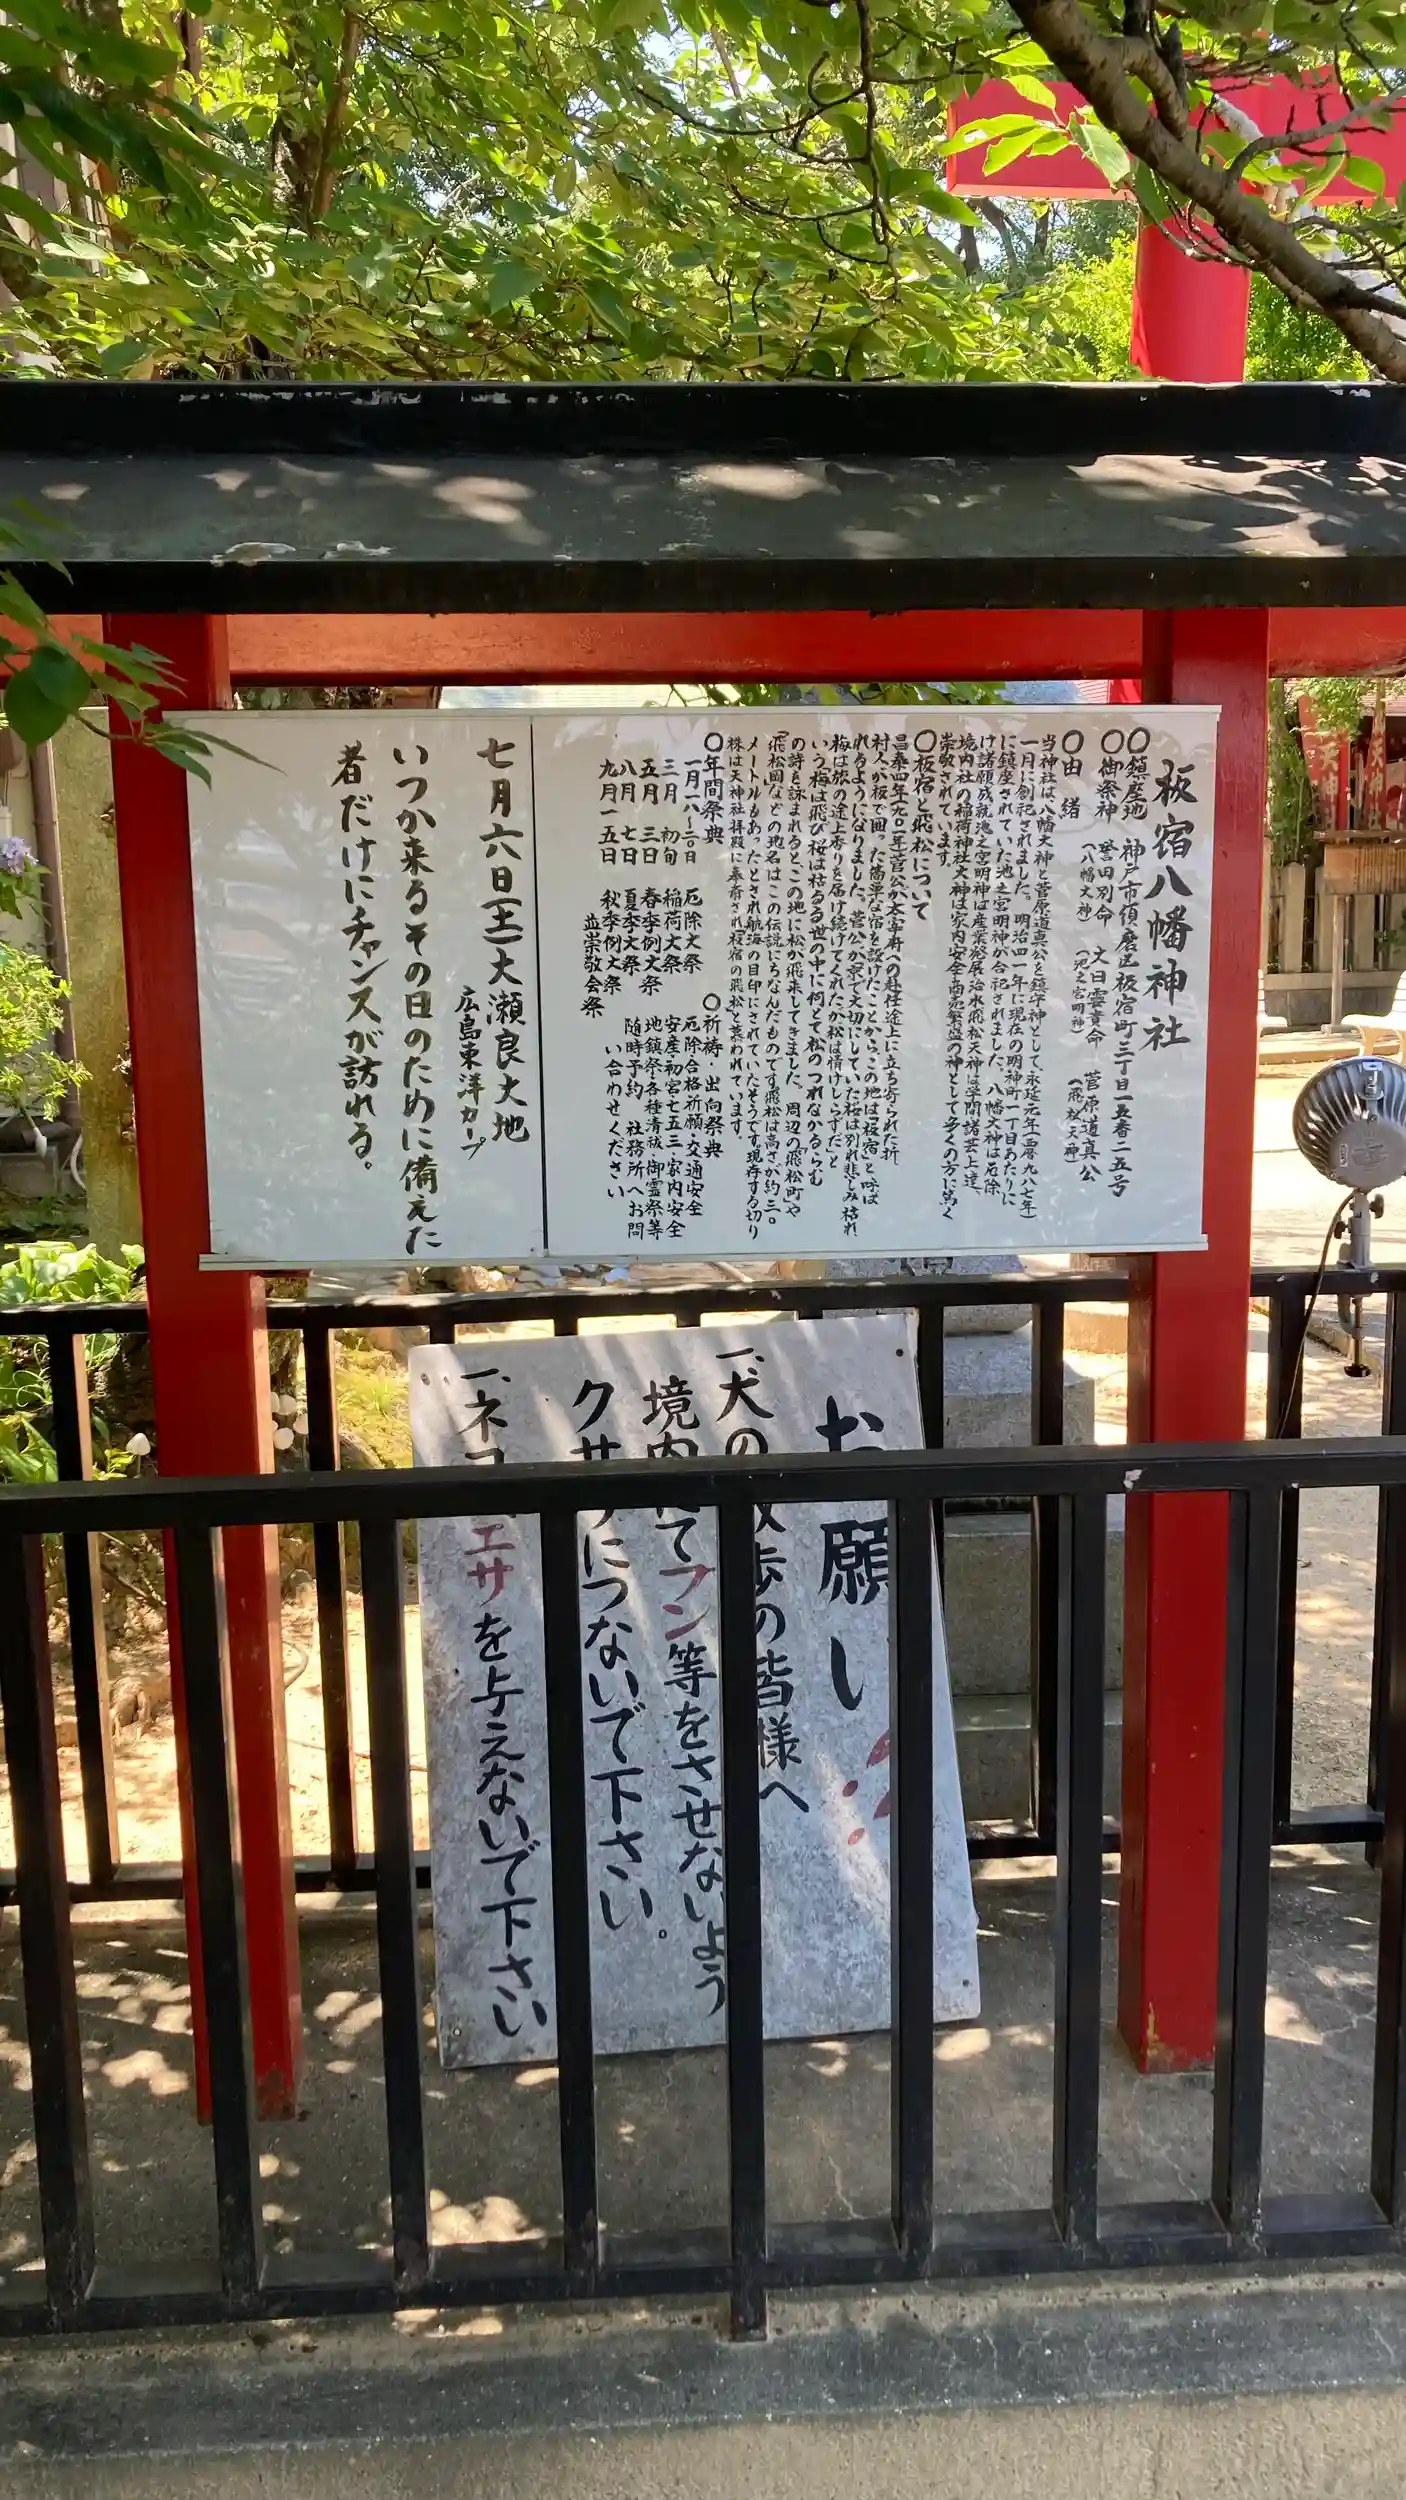 板宿八幡神社
〇鎮座地 神戸市須磨区板宿町三丁目一五番二五号
〇御祭神 誉田別命 大日霊貴命 菅原道真公
(八幡大神) (池之宮明神) (飛松天神)
〇由 緒
当神社は八幡大神と菅原道真公を鎮守神として、永延元年(西暦九八七年)
一月に創祀されました。明治四一年に現在の明神町一丁目あたりに
に鎮座されていた池之宮明神が合祀されました。八幡大神は厄除
け諸願成就池之宮明神は産業発展治水飛松天神は学問諸芸上達、
境内社の稲荷神社大神は家内安全商売繁盛の神として多くの方に篤く
崇敬されています。
〇板宿と飛松について
昌泰四年(九〇一年)菅公が太宰府への赴任途上に立ち寄られた折
村人が板で囲った簡単な宿を設けたことから、この地は「板宿」と呼ば
れるようになりました。菅公が京で大切にしていた桜は別れ悲しみ枯れ
梅は旅の途上香りを届け続けてくれたが松は情けしらずだ」と
いう「梅は飛び桜は枯るる世の中に何とて松のつれなかるらむ
の詩を詠まれると、この地に松が飛来してきました。周辺の「飛松町」や
「飛松岡」などの地名はこの伝説にちなんだものです飛松は高さが約三〇
メートルもあったとされ航海の目印にされていたそうです。現存する切り
株は天神社拝殿に奉斎され「板宿の飛松」と慕われています。
〇年間祭典 〇祈祷・出向祭典
一月一八~二〇日 厄除大祭 厄除合格祈願・交通安全
三月 初旬 稲荷大祭 安産・初宮七五三・家内安全
五月 三日 春季例大祭 地鎮祭・各種清祓・御霊祭等
八月 七日 夏季大祭 随時予約 社務所へお問
九月一五日 秋季例大祭 い合わせください
並崇敬会祭
七月六日(土)大瀬良大地
広島東洋カープ
いつか来るその日のために備えた
者だけにチャンスが訪れる。
お願い
一、犬の散歩の皆様へ
境内にてフン等をさせないよう
クサリにつないで下さい。
一、ネコにエサを与えないで下さい